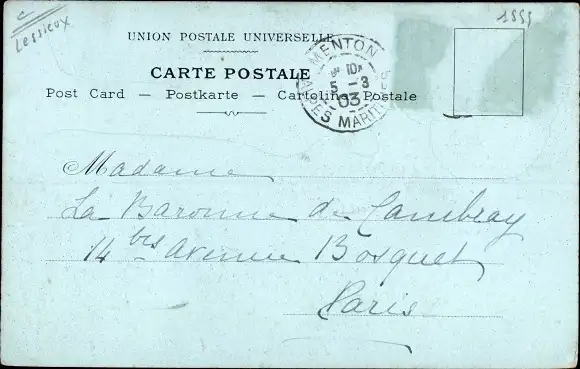 c
Lessieux
1555
UNION POSTALE UNIVERSELLE
CARTE POSTALE
Post Card — Postkarte — Cartolina Postale
MENTON
5 - 3
03
ALPES MARITIMES
Madame
La Baronne de Cambray
14 bis Avenue Bosquet
Paris